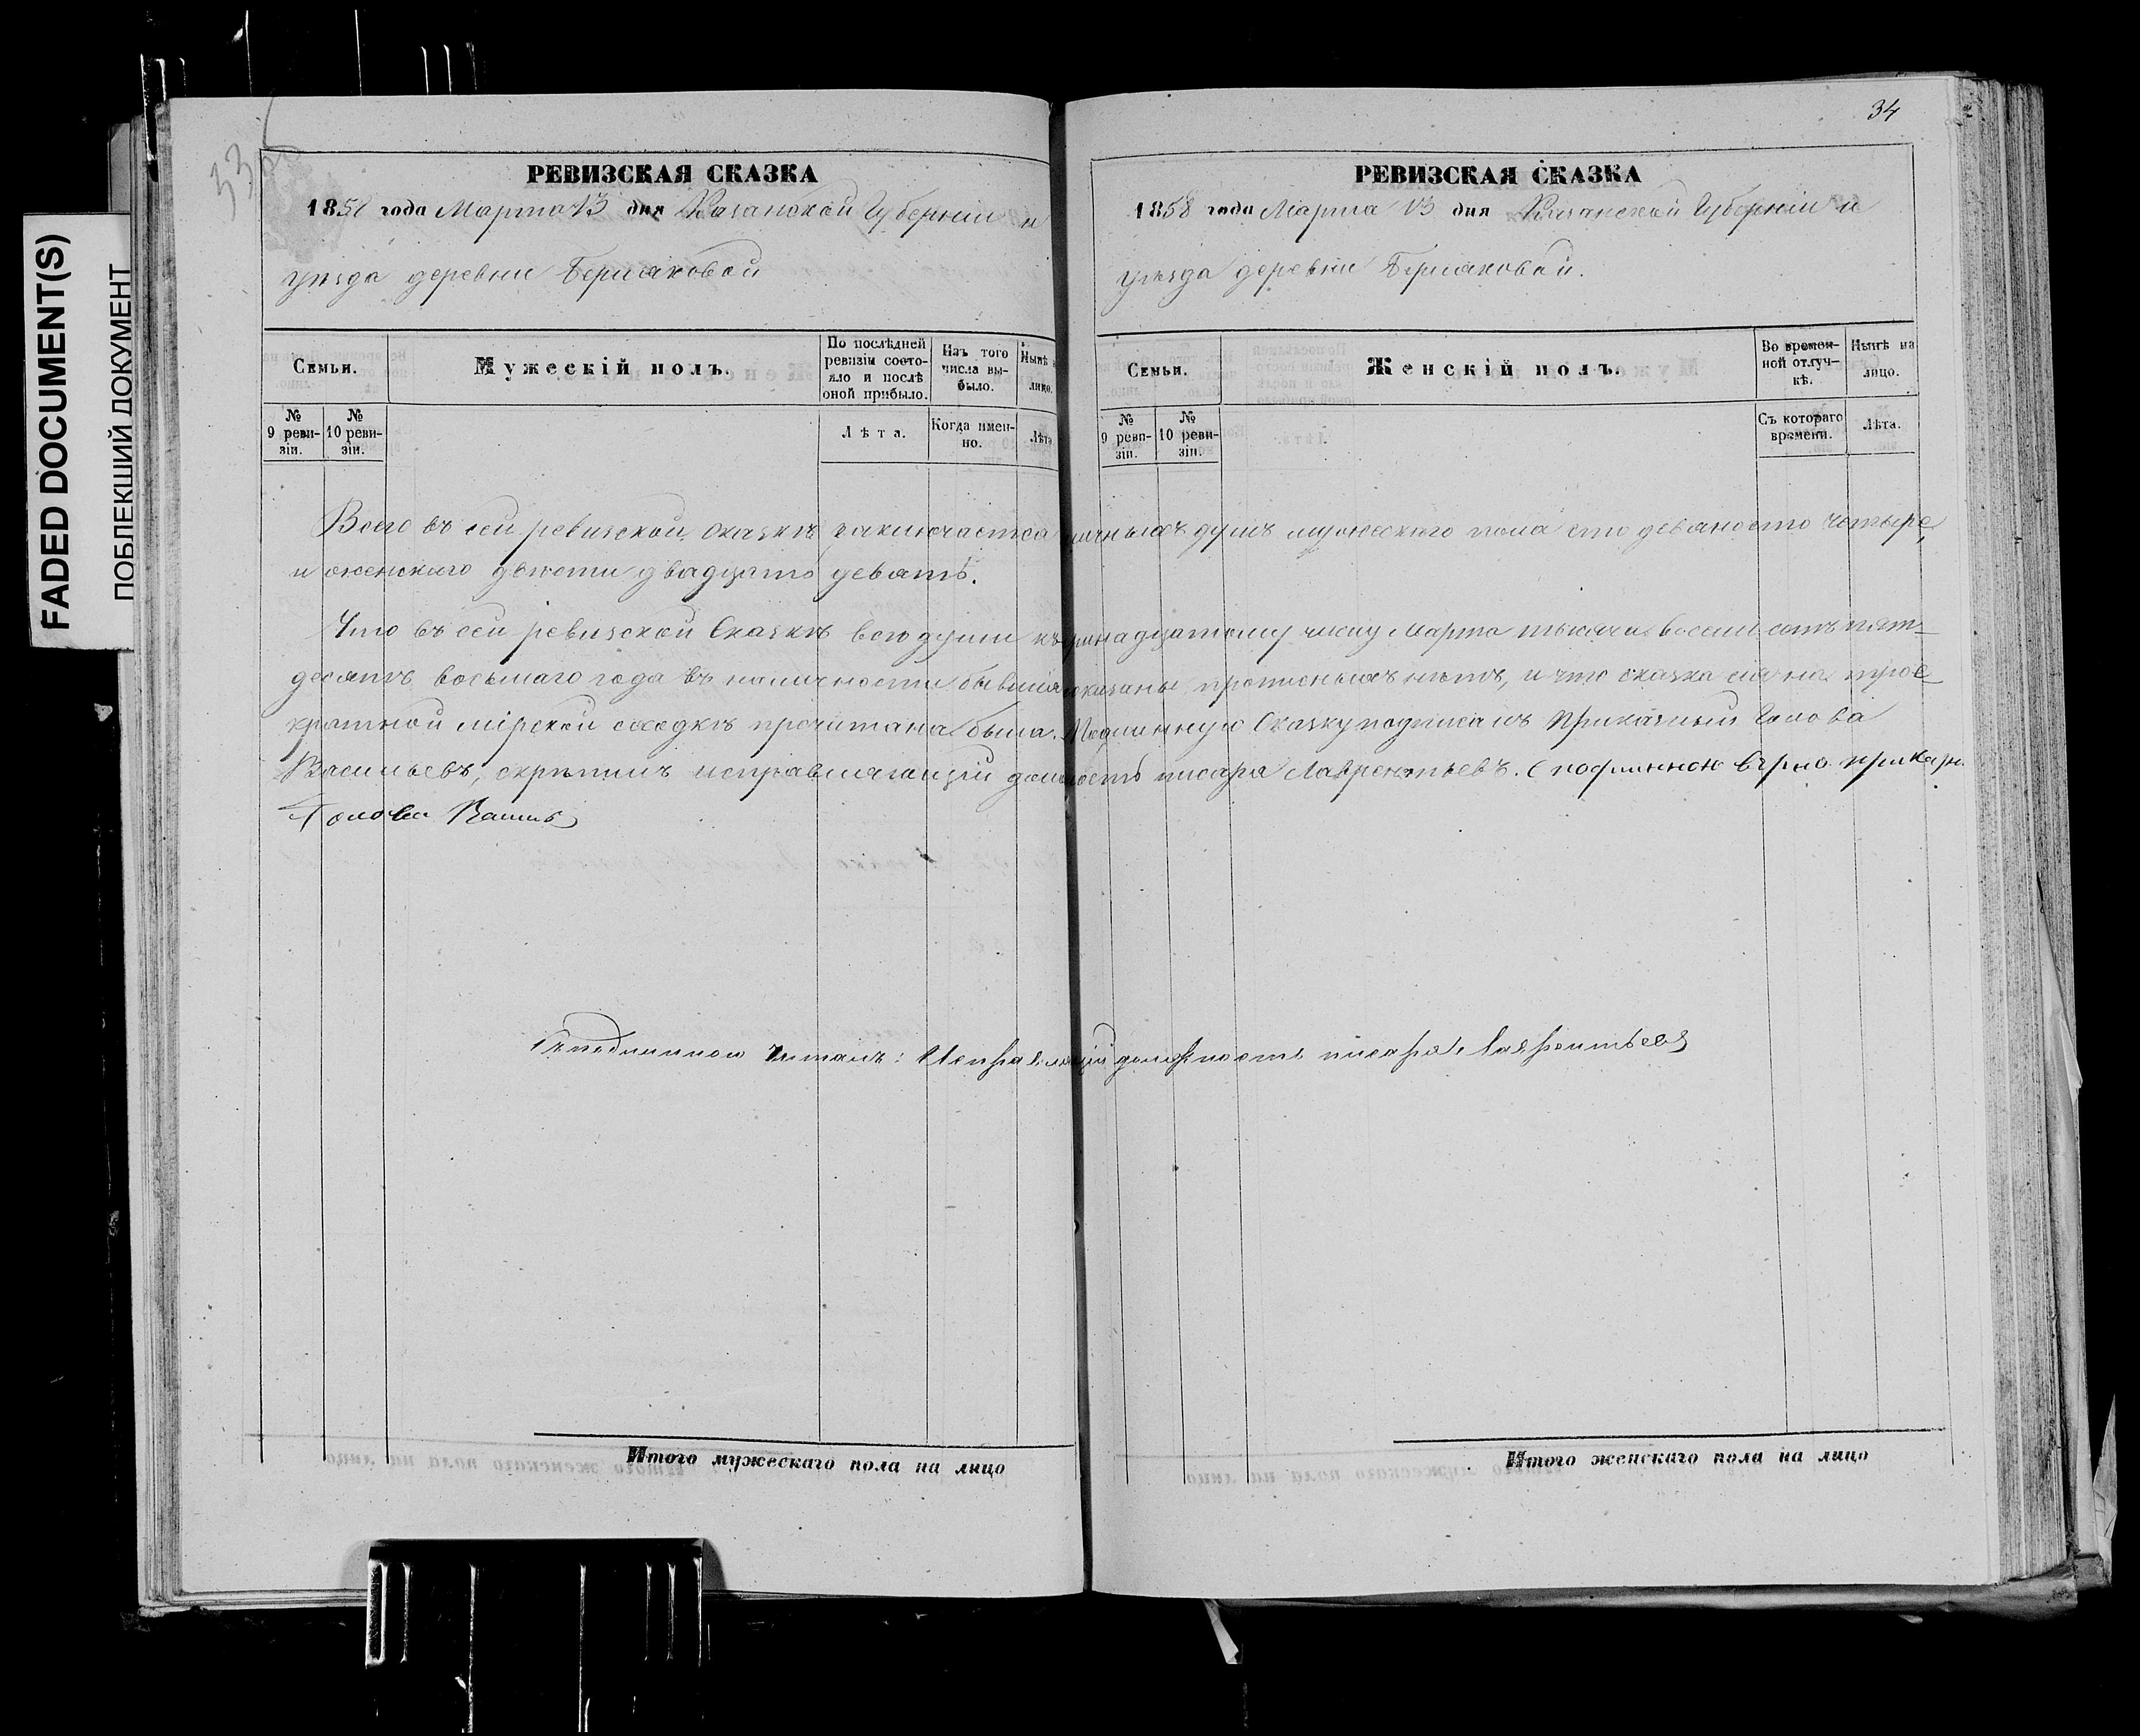 FADED DOCUMENT(S)
ПОБЛЕКШИЙ ДОКУМЕНТ
РЕВИЗСКАЯ СКАЗКА
1858 года Марта 13 дня Казанской Губерніи и
уѣзда деревни Бермяковой
Семьи.
Мужескій полъ.
По послѣдней ревизіи состояло и послѣ оной прибыло.
Изъ того числа выбыло.
Нынѣ лицо.
№ 9 ревизіи.
№ 10 ревизіи.
Лѣта.
Когда именно.
Лѣта
34
РЕВИЗСКАЯ СКАЗКА
1858 года Марта 13 дня Казанской Губерніи и
уѣзда деревни Бермяковой.
Семьи.
Женскій полъ.
Во временной отлучкѣ.
Нынѣ на лицо.
№ 9 ревизіи.
№ 10 ревизіи.
Съ котораго времени.
Лѣта.
Всего въ сей ревизской сказкѣ заключается душъ мужескаго пола сто девяносто четыре,
и женскаго двѣсти двадцать девять.
Что въ сей ревизской Сказкѣ всѣ души къ тринадцатому числу Марта тысяча восемь сотъ пять-
десятъ восьмаго года въ наличности бывшія показаны, прописныхъ нѣтъ, и что сказка сія на трое-
кратной мірской сходкѣ прочитана была. Подлинную Сказку подписалъ Приказный Голова
Васильевъ, скрѣпилъ исправляющій должность писаря Лаврентьевъ. С подлинною вѣрно приказн.
Голова
Съ подлинною читалъ: Исправляющій должность писаря Лаврентьевъ
Итого мужескаго пола на лицо
Итого женскаго пола на лицо